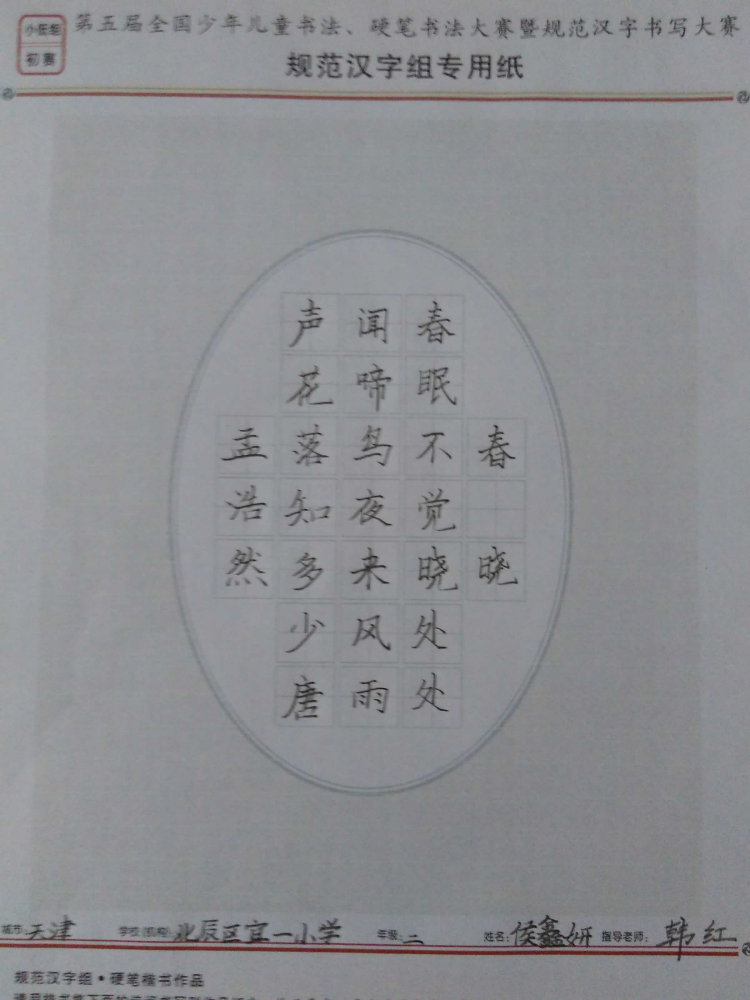 小低组
初赛
第五届全国少年儿童书法、硬笔书法大赛暨规范汉字书写大赛
规范汉字组专用纸
春晓
春眠不觉晓处处
闻啼鸟夜来风雨
声花落知多少唐
孟浩然
城市:天津 学校(机构):北辰区宜一小学 年级:二 姓名:侯鑫妍 指导老师:韩红
规范汉字组·硬笔楷书作品